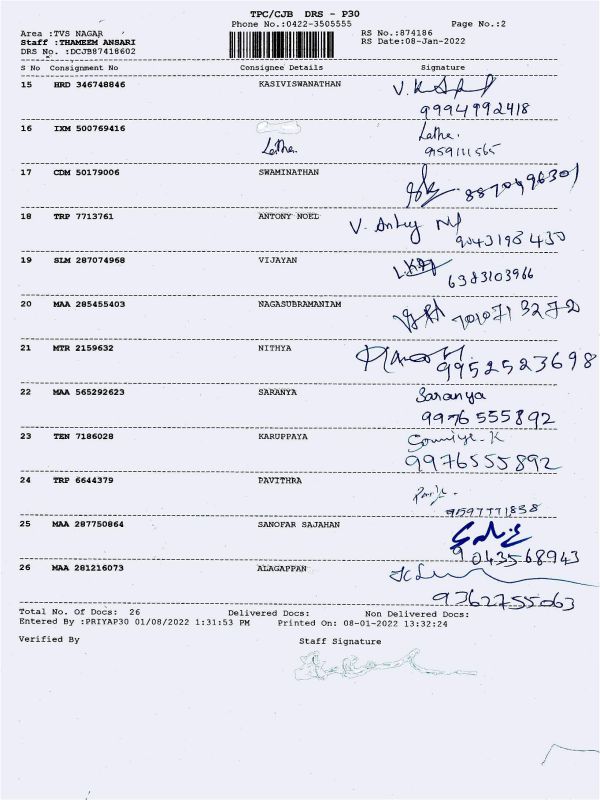 TPC/CJB DRS - P30
Phone No.:0422-3505555 Page No.:2
Area :TVS NAGAR RS No.:874186
Staff :THAMEEM ANSARI RS Date:08-Jan-2022
DRS No. :DCJB87418602
S No Consignment No Consignee Details Signature
15 HRD 346748846 KASIVISWANATHAN
9994992418
16 IXM 500769416 Latha.
Latha. 9159111565
17 CDM 50179006 SWAMINATHAN
18 TRP 7713761 ANTONY NOEL V. Antony
9043198430
19 SLM 287074968 VIJAYAN
6383103966
20 MAA 285455403 NAGASUBRAMANIAM
21 MTR 2159632 NITHYA
9952523698
22 MAA 565292623 SARANYA Saranya
9976555892
23 TEN 7186028 KARUPPAYA Sowmiya-K
9976555892
24 TRP 6644379 PAVITHRA
25 MAA 287750864 SANOFAR SAJAHAN
9043568943
26 MAA 281216073 ALAGAPPAN
9362755063
Total No. Of Docs: 26 Delivered Docs: Non Delivered Docs:
Entered By :PRIYAP30 01/08/2022 1:31:53 PM Printed On: 08-01-2022 13:32:24
Verified By Staff Signature